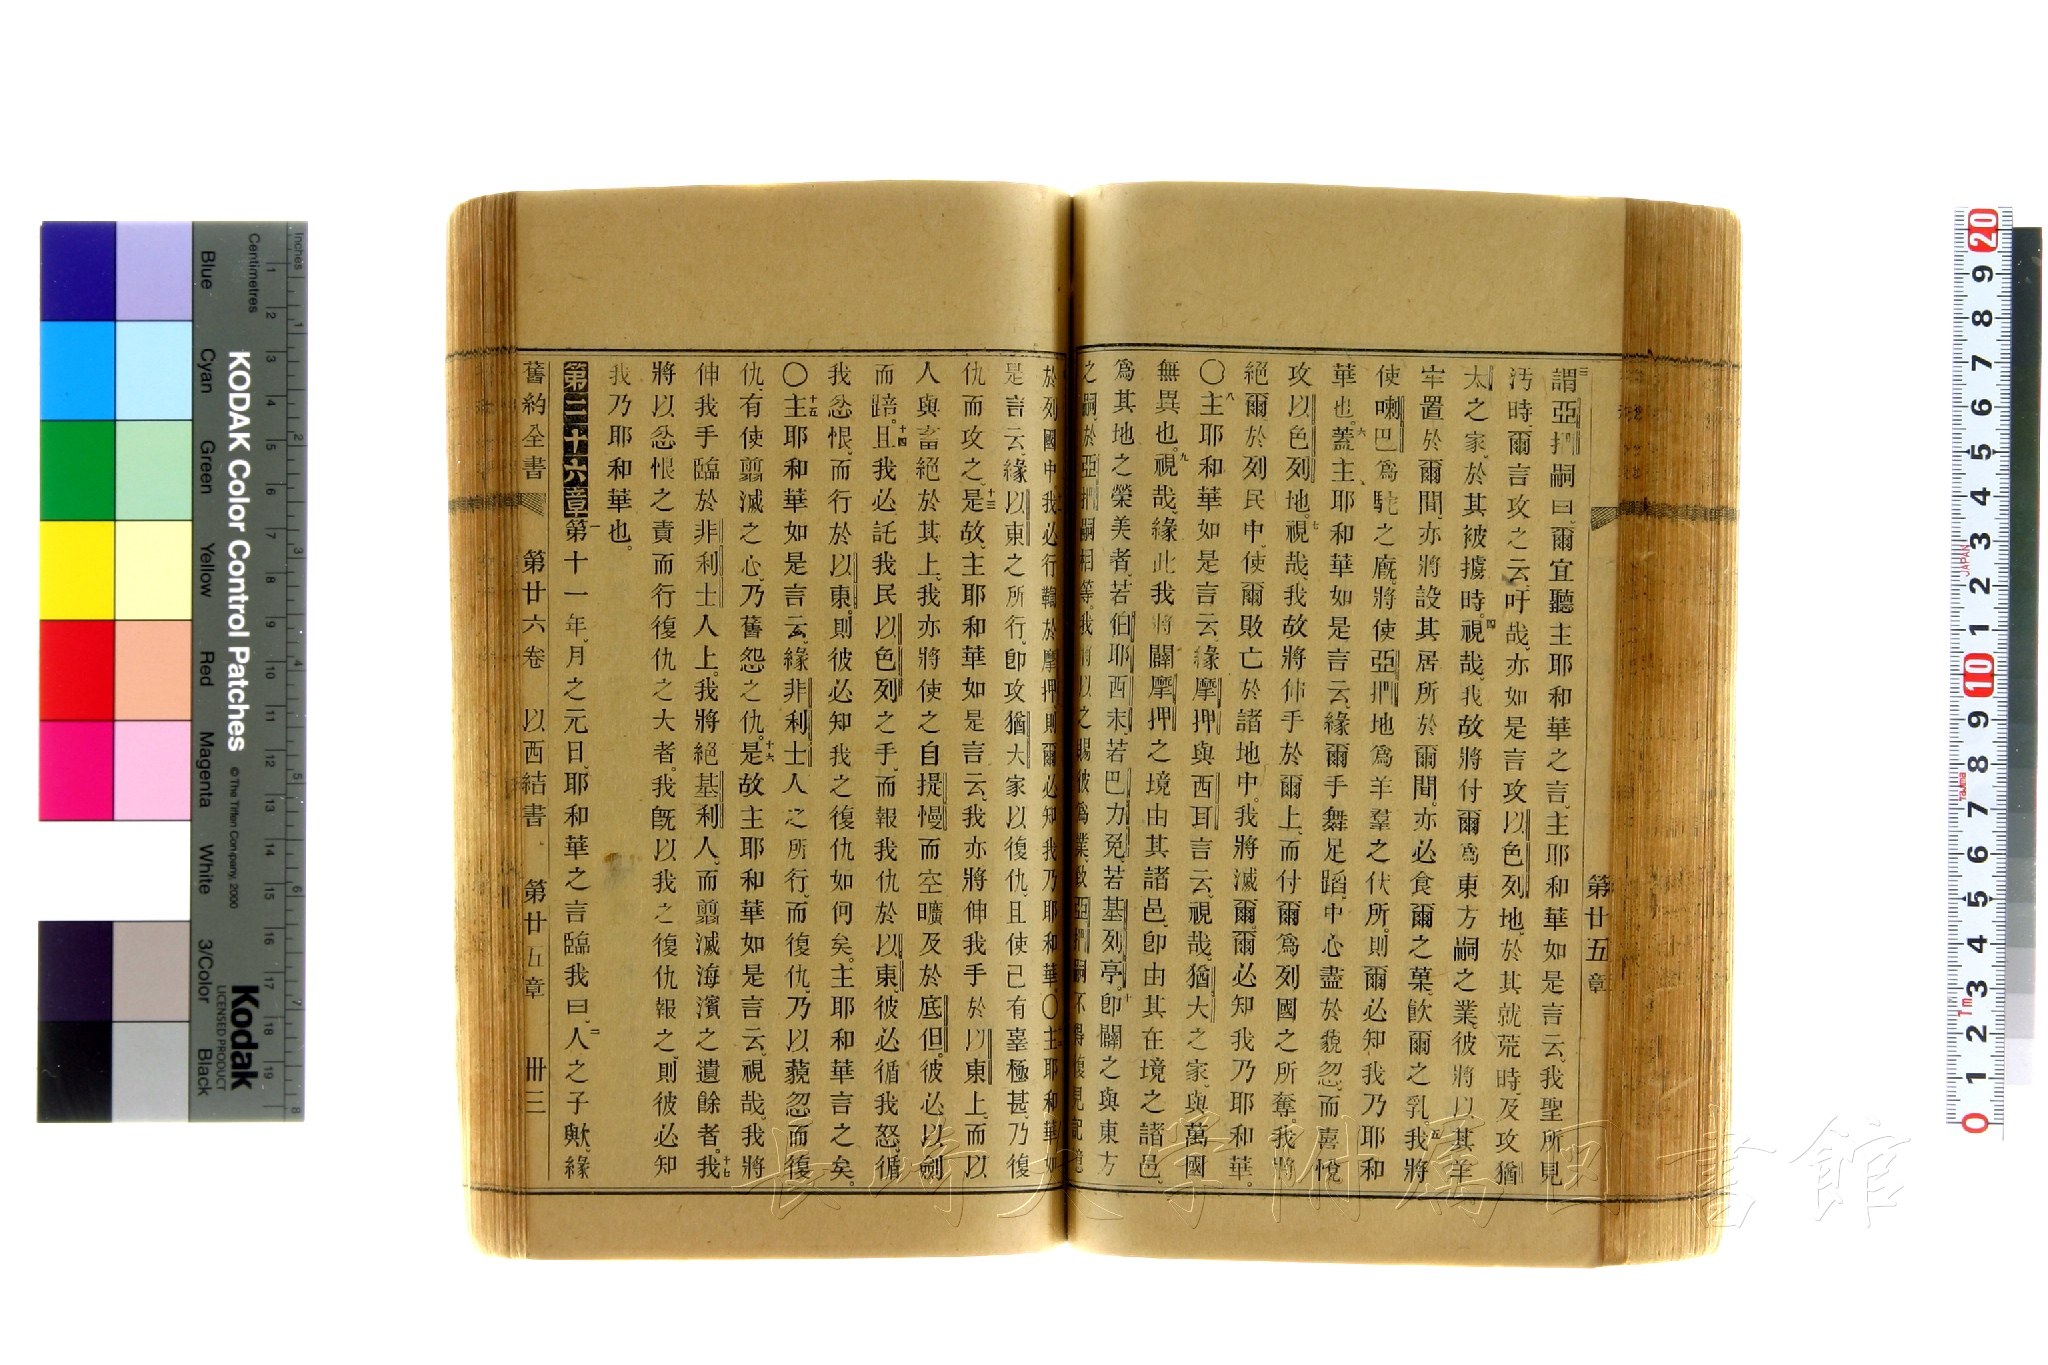 第廿五章
三謂亞捫嗣曰、爾宜聽主耶和華之言、主耶和華如是言云、我聖所見
汚時、爾言攻之云、吁哉、亦如是言攻以色列地、於其就荒時、及攻猶
太之家、於其被擄時。四視哉、我故將付爾爲東方嗣之業、彼將以其羊
牢置於爾間、亦將設其居所於爾間。亦必食爾之菓、飲爾之乳。五我將
使喇巴爲駝之廐、將使亞捫地爲羊羣之伏所。則爾必知我乃耶和
華也。六蓋主耶和華如是言云、緣爾手舞足蹈、中心盡於藐忽、而喜悅
攻以色列地。七視哉、我故將伸手於爾上、而付爾爲列國之所奪。我將
絕爾於列民中、使爾敗亡於諸地中。我將滅爾。爾必知我乃耶和華。
〇八主耶和華如是言云、緣摩押與西耳言云、視哉、猶大之家、與萬國
無異也。九視哉、緣此我將闢摩押之境由其諸邑、卽由其在境之諸邑、
爲其地之榮美者、若伯耶西末、若巴力免、若基列亭。十卽闢之與東方
之嗣、於亞捫嗣相等。我將以之賜彼爲業、致亞捫嗣不得復見記憶
於列國中。十一我必行鞫於摩押、則爾必知我乃耶和華。〇十二主耶和華如
是言云、緣以東之所行、卽攻猶大家以復仇、且使己有辠極甚、乃復
仇而攻之。十三是故、主耶和華如是言云、我亦將伸我手於以東上、而以
人與畜絕於其上、我亦將使之自提慢而空曠及於底但。彼必以劍
而踣。十四且我必託我民以色列之手、而報我仇於以東、彼必循我怒、循
我忿恨、而行於以東、則彼必知我之復仇如何矣。主耶和華言之矣。
〇十五主耶和華如是言云、緣非利士人之所行、而復仇、乃以藐忽而復
仇、有使翦滅之心、乃舊怨之仇。十六是故主耶和華如是言云、視哉、我將
伸我手臨於非利士人上。我將絕基利人、而翦滅海濱之遺餘者。十七我
將以忿恨之責而行復仇之大者。我旣以我之復仇報之、則彼必知
我乃耶和華也。
第二十六章一第十一年、月之元日、耶和華之言臨我曰、二人之子歟、緣
舊約全書 第廿六卷 以西結書 第廿五章 卅三
長崎大学附属図書館
KODAK Color Control Patches
© The Tiffen Company, 2000
Kodak
LICENSED PRODUCT
Inches
Centimetres
Blue
Cyan
Green
Yellow
Red
Magenta
White
3/Color
Black
JAPAN
Tajima